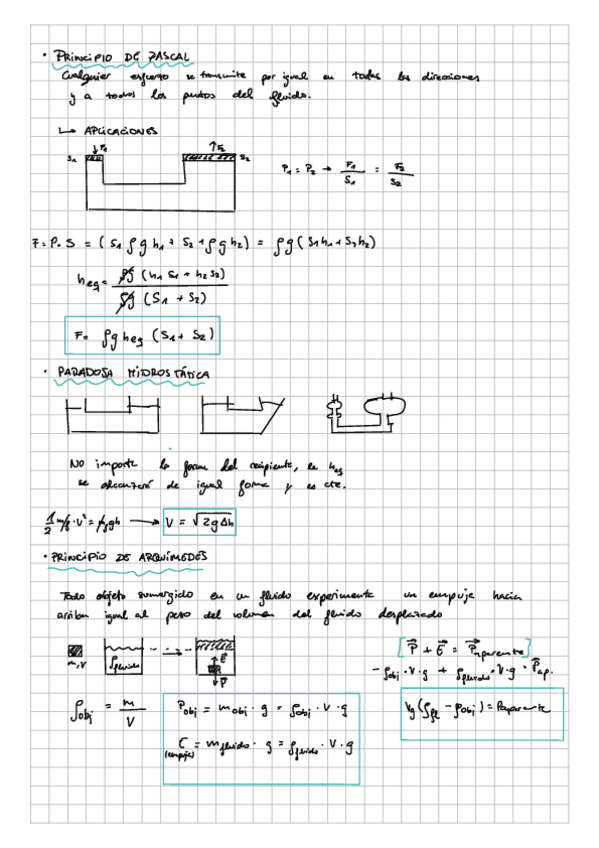 · PRINCIPIO DE PASCAL
Cualquier esfuerzo se transmite por igual en todas las direcciones
y a todos los puntos del fluido.
↳ APLICACIONES
↓F1 ↑F2
S1 S2
P1 = P2 → F1/S1 = F2/S2
F = P.S = (S1 ρ g h1 + S2 + ρ g h2) = ρg (S1h1 + S2h2)
heq = ρg (h1 S1 + h2 S2) / ρg (S1 + S2)
F = ρg heq (S1 + S2)
· PARADOJA HIDROSTÁTICA
No importa la forma del recipiente, la heq
se alcanzará de igual forma y es cte.
1/2 m · v² = mgh → V = √2gΔh
· PRINCIPIO DE ARQUÍMEDES
Todo objeto sumergido en un fluido experimenta un empuje hacia
arriba igual al peso del volumen del fluido desplazado
m,V ρfluido E P
P + E = Paparente
-ρobj · V · g + ρfluido · V · g = Pap.
ρobj = m/V
Pobj = mobj · g = ρobj · V · g
Vg (ρfl - ρobj) = Paparente
E = mfluido · g = ρfluido · V · g
(empuje)